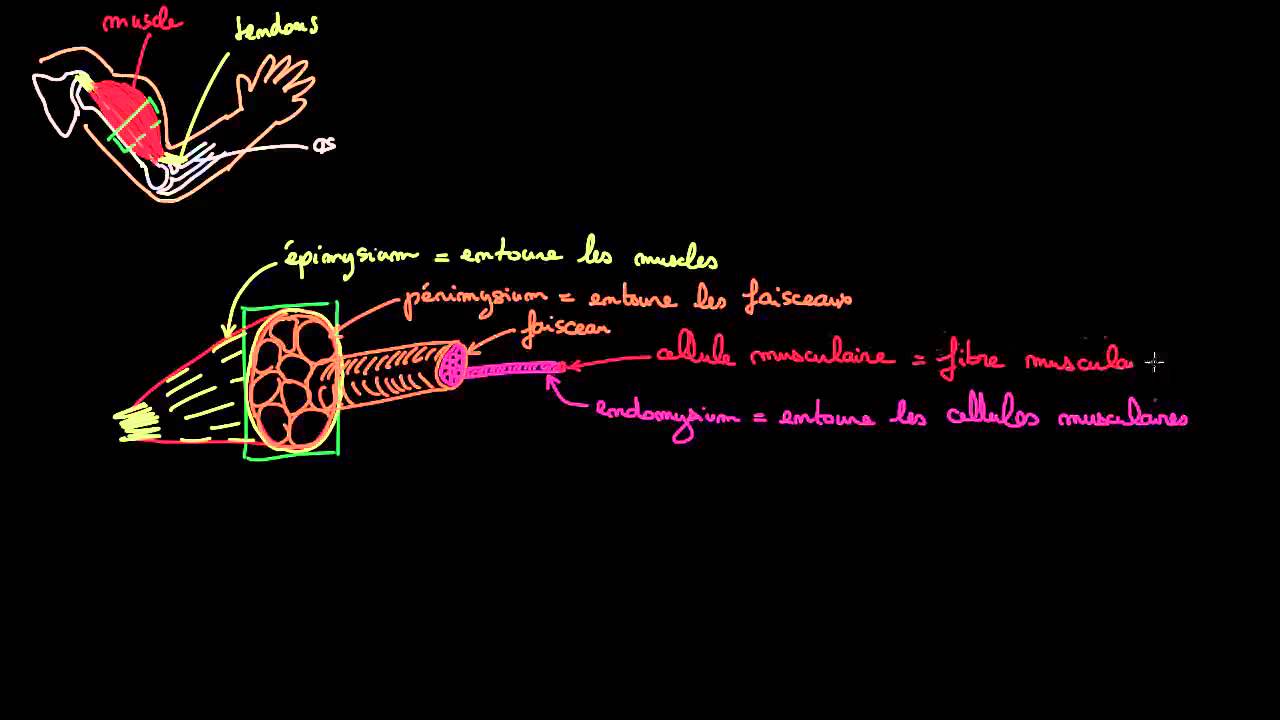 muscle
tendons
os
épimysium = entoure les muscles
périmysium = entoure les faisceaux
faisceau
cellule musculaire = fibre muscula
endomysium = entoure les cellules musculaires